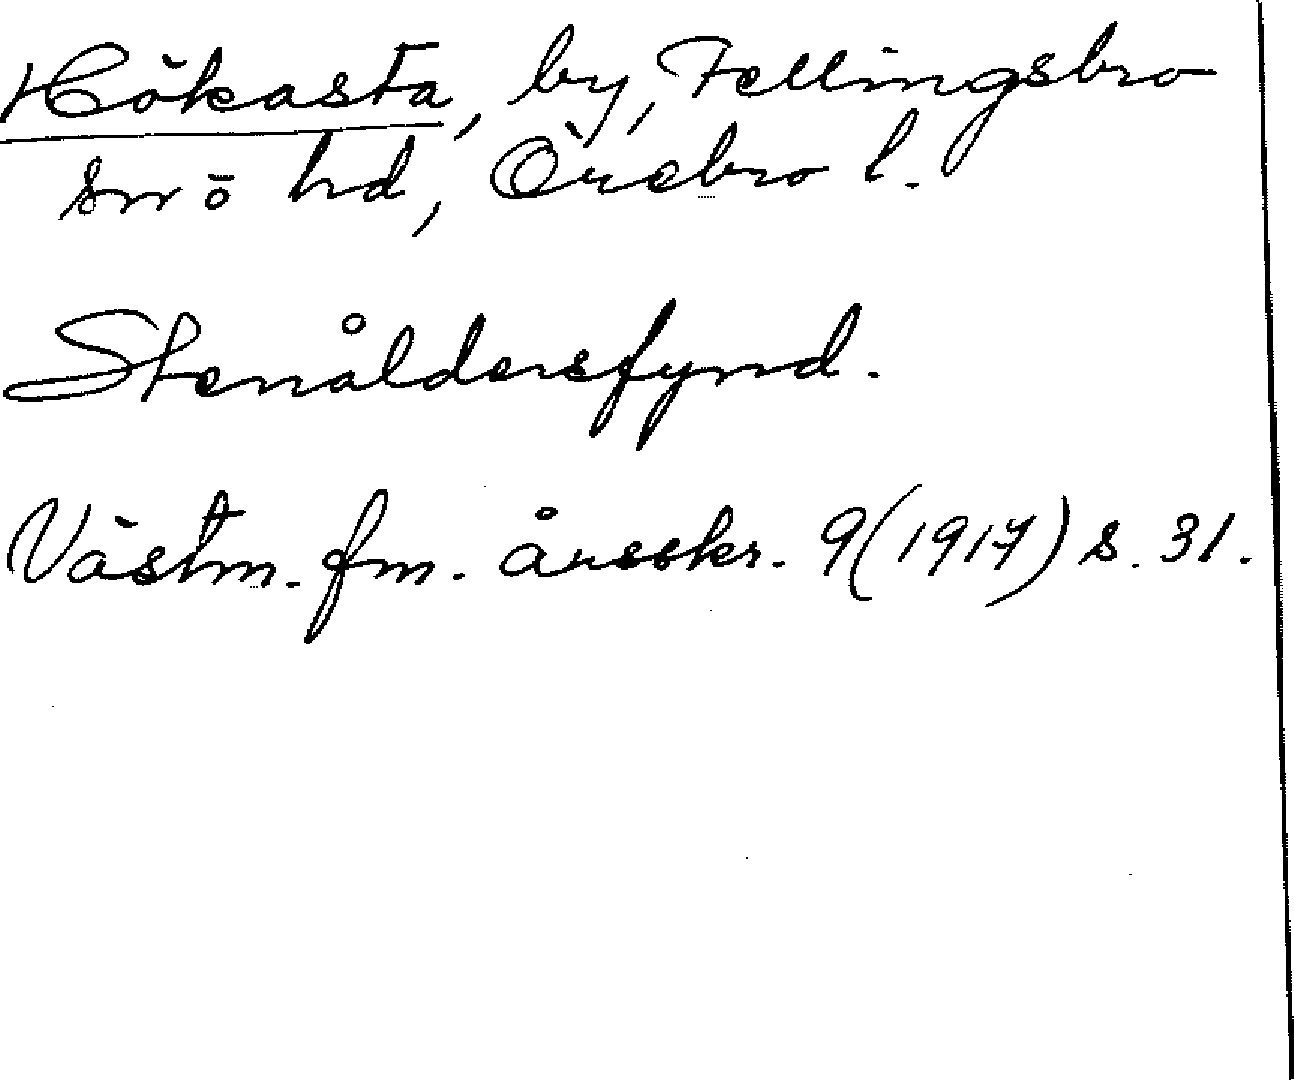 Hökasta, by, Fellingsbro
sn o hd, Örebro l.
Stenåldersfynd.
Västm. fm. årsskr. 9(1917) s. 31.